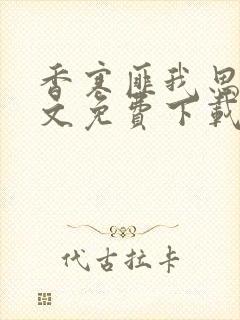 香寒匪我思
文免费下载
代古拉卡